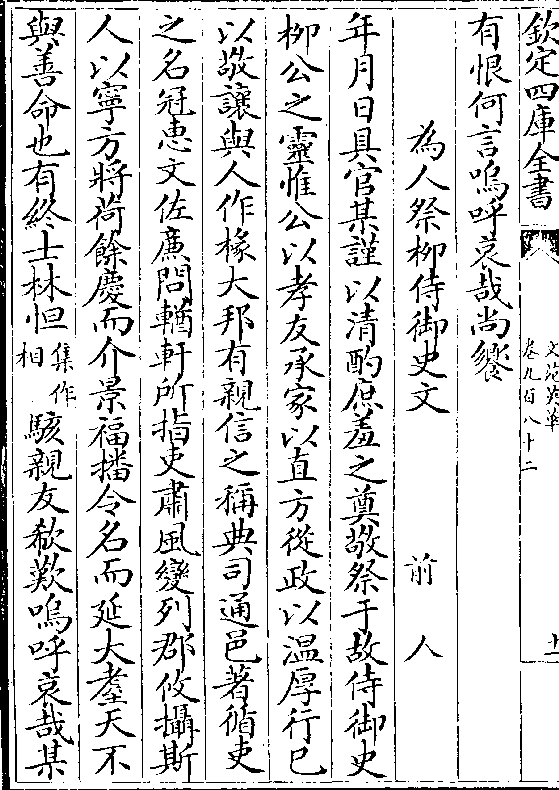 欽定四庫全書
文苑英華
卷九百八十二
十一
有恨何言嗚呼哀哉尚饗
為人祭柳侍御史文 前人
年月日具官某謹以清酌庶羞之奠敬祭于故侍御史
柳公之靈惟公以孝友承家以直方從政以温厚行已
以敬讓與人作掾大邦有親信之稱典司通邑著循吏
之名冠惠文佐廉問輶軒所指吏肅風變列郡攸攝斯
人以寧方將荷餘慶而介景福播令名而延大耋天不
與善命也有終士林怛集作相駭親友欷歎嗚呼哀哉某